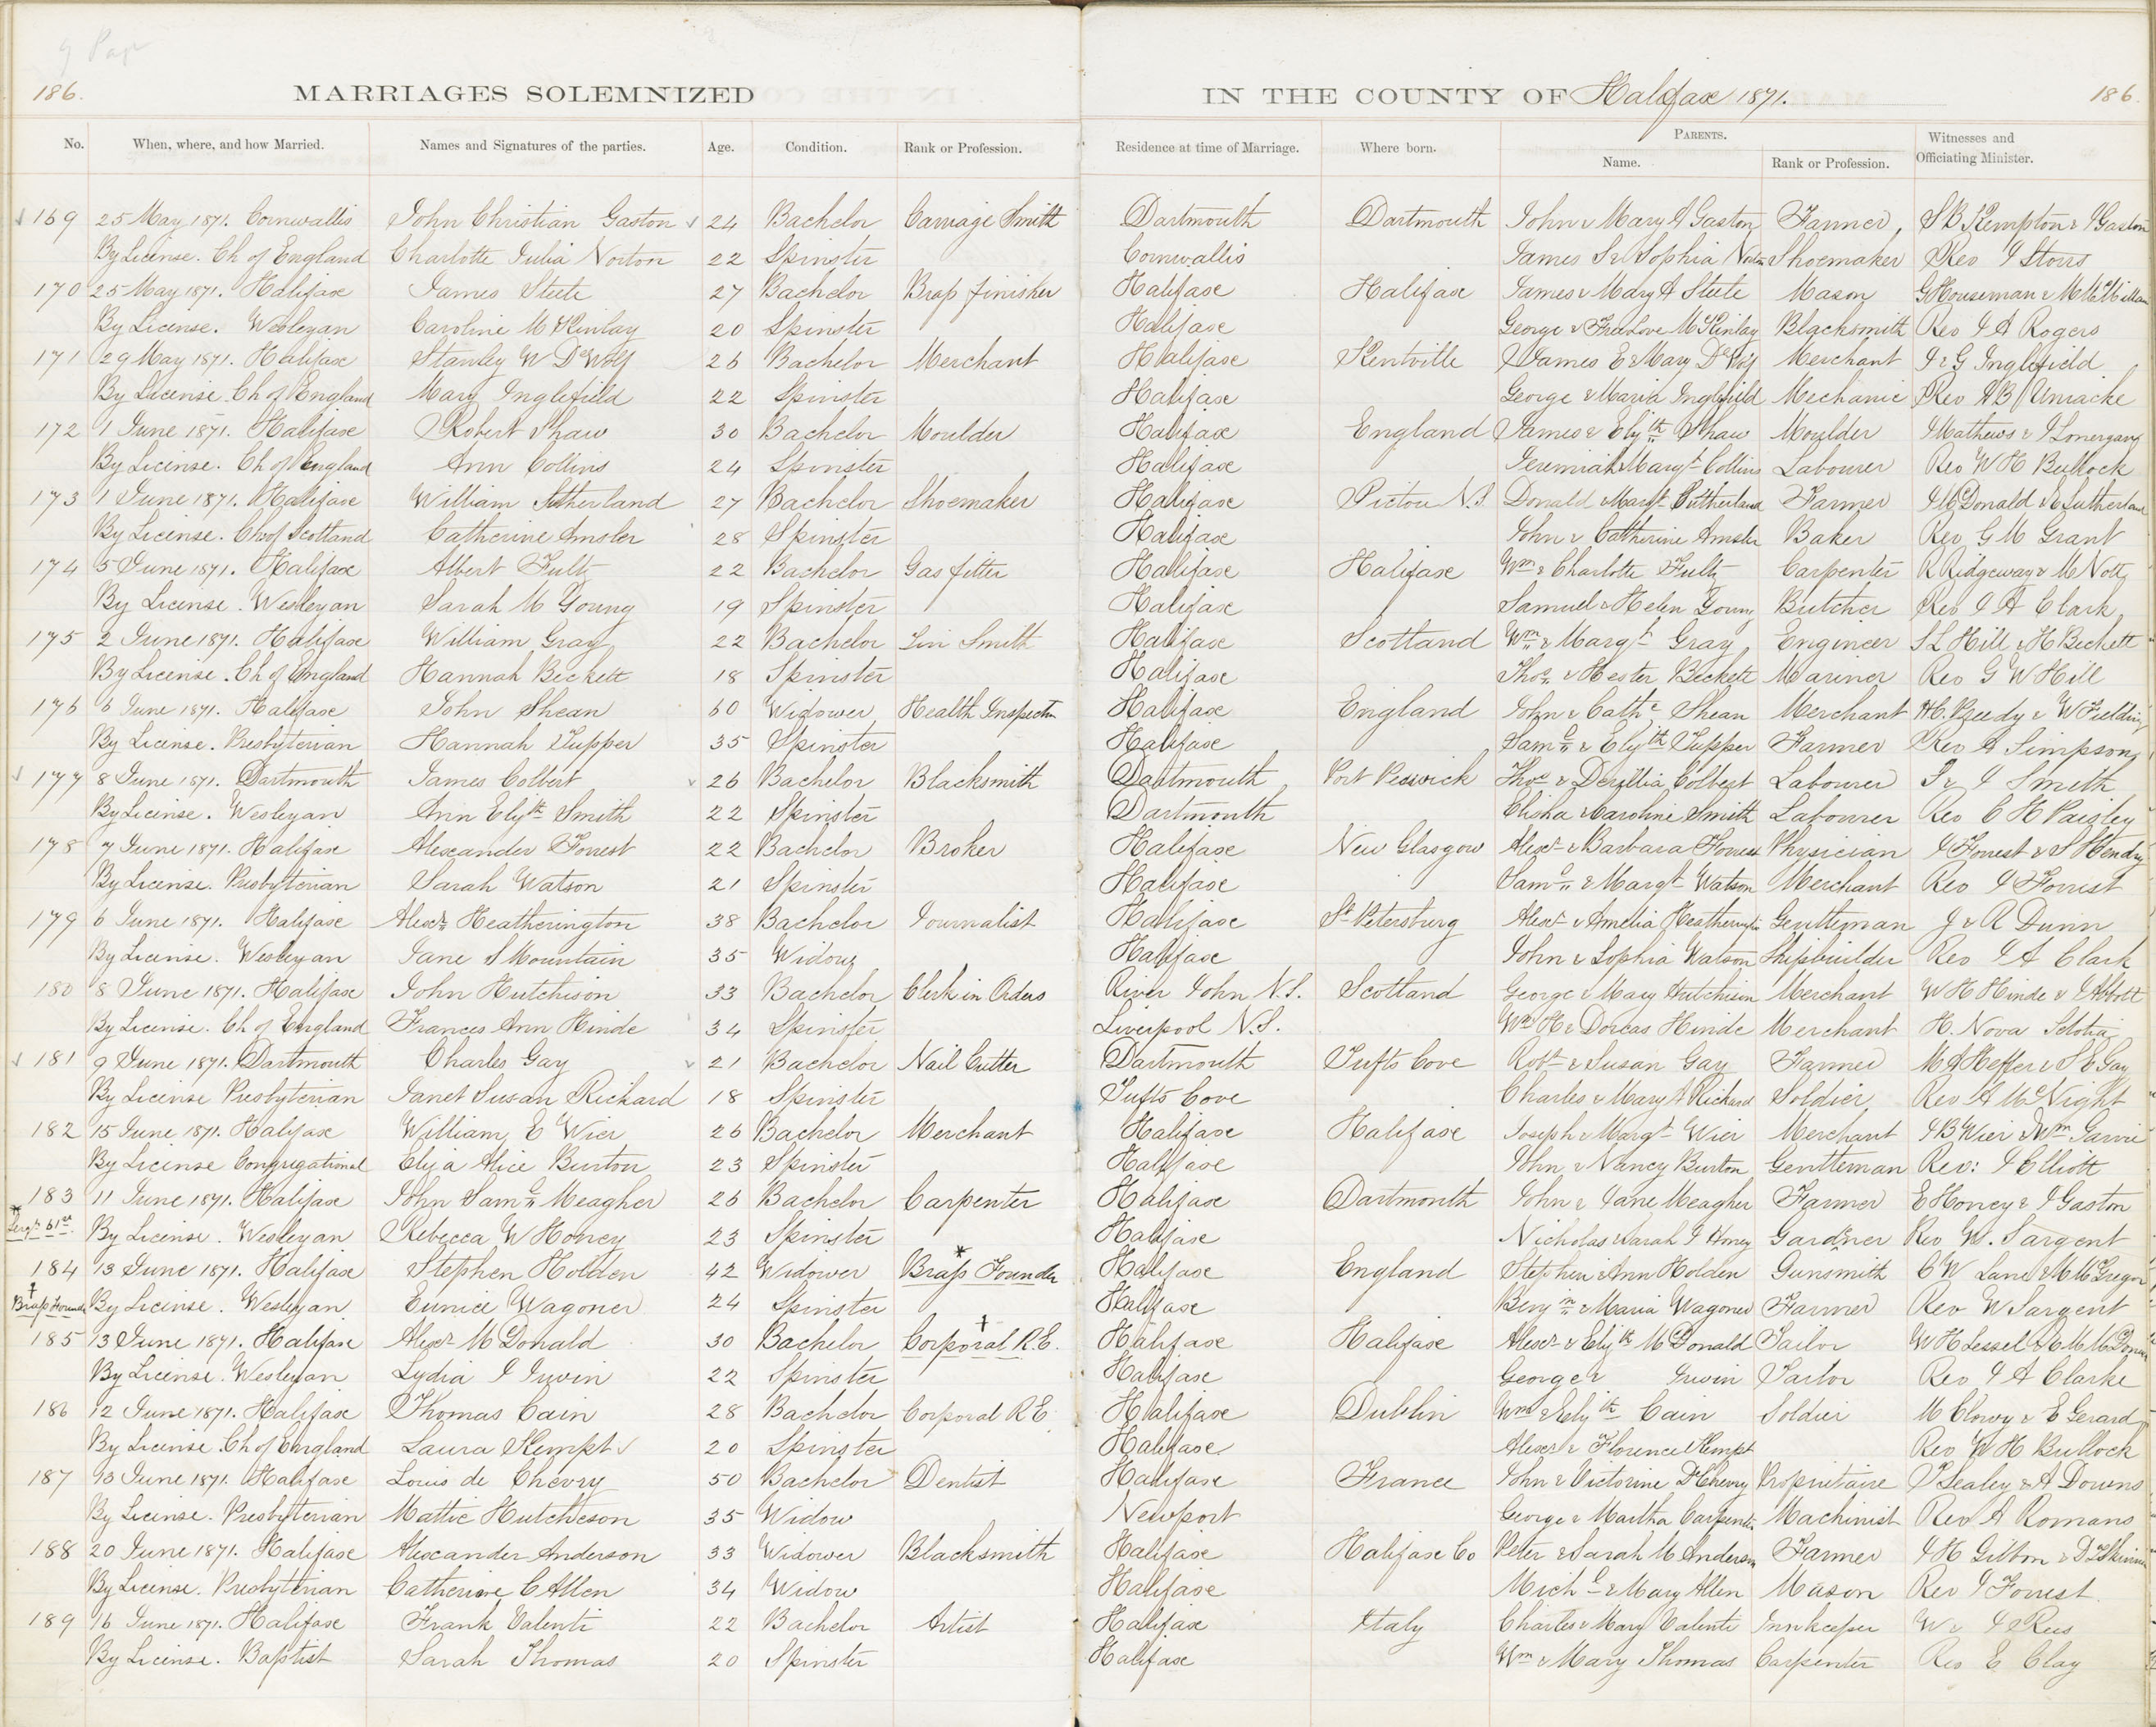 186.
MARRIAGES SOLEMNIZED IN THE COUNTY OF Halifax 1871.
186
No. When, where, and how Married. Names and Signatures of the parties. Age. Condition. Rank or Profession. Residence at time of Marriage. Where born. PARENTS. Name. Rank or Profession. Witnesses and Officiating Minister.
169 25 May 1871. Cornwallis John Christian Gaston 24 Bachelor Carriage Smith Dartmouth Dartmouth John & Mary A Gaston Farmer, S B Kempton & J Gaston
By License. Ch of England Charlotte Julia Norton 22 Spinster Cornwallis James S & Sophia Norton Shoemaker Rev J Storrs
170 25 May 1871. Halifax James Steele 27 Bachelor Brass finisher Halifax Halifax James & Mary A Steele Mason G Houseman & M McMillan
By License. Wesleyan Caroline McKinlay 20 Spinster Halifax George & FreeLove McKinlay Blacksmith Rev J A Rogers
171 29 May 1871. Halifax Stanley W DeWolf 26 Bachelor Merchant Halifax Kentville James E & Mary DeWolf Merchant J & G Inglefield
By License. Ch of England Mary Inglefield 22 Spinster Halifax George & Maria Inglefield Mechanic Rev R B Uniacke
172 1 June 1871. Halifax Robert Shaw 30 Bachelor Moulder Halifax England James & Elizth Shaw Moulder J Mathews & J Lonergang
By License. Ch of England Ann Collins 24 Spinster Halifax Jeremiah & Margt Collins Labourer Rev W H Bullock
173 1 June 1871. Halifax William Sutherland 27 Bachelor Shoemaker Halifax Pictou N.S. Donald & Margt Sutherland Farmer J McDonald & E Sutherland
By License. Ch of Scotland Catherine Amsler 28 Spinster Halifax John & Catherine Amsler Baker Rev G M Grant
174 5 June 1871. Halifax Albert Fultz 22 Bachelor Gas fitter Halifax Halifax Wm & Charlotte Fultz Carpenter R Ridgeway & M Nott
By License. Wesleyan Sarah M Young 19 Spinster Halifax Samuel & Helen Young Butcher Rev J A Clark
175 2 June 1871. Halifax William Gray 22 Bachelor Tin Smith Halifax Scotland Wm & Margt Gray Engineer S L Hill & H Beckett
By License. Ch of England Hannah Beckett 18 Spinster Halifax Thos & Hester Beckett Mariner Rev G W Hill
176 6 June 1871. Halifax John Shean 60 Widower Health Inspector Halifax England John & Cathe Shean Merchant H. C. Beedy & W Fielding
By License. Presbyterian Hannah Tupper 35 Spinster Halifax Saml & Elizth Tupper Farmer Rev A Simpson
177 8 June 1871. Dartmouth James Colbert 26 Bachelor Blacksmith Dartmouth Port Peswick Thos & Derillia Colbert Labourer S & J Smith
By License. Wesleyan Ann Elizth Smith 22 Spinster Dartmouth Elisha & Caroline Smith Labourer Rev C H Paisley
178 7 June 1871. Halifax Alexander Forrest 22 Bachelor Broker Halifax New Glasgow Alexr & Barbara Forrest Physician J Forrest & S Hendry
By License. Presbyterian Sarah Watson 21 Spinster Halifax Saml & Margt Watson Merchant Rev J Forrest
179 6 June 1871. Halifax Alexr Heatherington 38 Bachelor Journalist Halifax St Petersburg Alexr & Amelia Heatherington Gentleman J & A Dunn
By License. Wesleyan Jane S Mountain 35 Widow Halifax John & Sophia Watson Shipbuilder Rev J A Clark
180 8 June 1871. Halifax John Hutchison 33 Bachelor Clerk in Orders River John N.S. Scotland George & Mary Hutchison Merchant W H Hinde & J Abbott
By License. Ch of England Frances Ann Hinde 34 Spinster Liverpool N.S. Wm H & Dorcas Hinde Merchant H. Nova Scotia
181 9 June 1871. Dartmouth Charles Gay 21 Bachelor Nail Cutter Dartmouth Tufts Cove Robt & Susan Gay Farmer M A Heffer & S E Gay
By License Presbyterian Janet Susan Richard 18 Spinster Tufts Cove Charles & Mary A Richard Soldier Rev A McNight
182 15 June 1871. Halifax William E Wier 26 Bachelor Merchant Halifax Halifax Joseph & Margt Wier Merchant J B Wier & Wm Garvie
By License Congregational Eliza Alice Burton 23 Spinster Halifax John & Nancy Burton Gentleman Rev: J Elliott
183 11 June 1871. Halifax John Saml Meagher 26 Bachelor Carpenter Halifax Dartmouth John & Jane Meagher Farmer E Honey & J Gaston
* By License. Wesleyan Rebecca W Honey 23 Spinster Halifax Nicholas & Sarah J Honey Gardener Rev W. Sargent
184 13 June 1871. Halifax Stephen Holden 42 Widower * Brass Founder Halifax England Stephen & Ann Holden Gunsmith C W Lane & M McGregor
† Brass Founder By License. Wesleyan Eunice Wagoner 24 Spinster Halifax Benjmn & Maria Wagoner Farmer Rev W Sargent
185 13 June 1871. Halifax Alexr McDonald 30 Bachelor † Corporal R.E. Halifax Halifax Alexr & Elizth McDonald Tailor W H Lessel & M McDonald
By License. Wesleyan Lydia J Irwin 22 Spinster Halifax George & Irwin Tailor Rev J A Clarke
186 12 June 1871. Halifax Thomas Cain 28 Bachelor Corporal R E Halifax Dublin Wm & Elizth Cain Soldier M Clowy & E Gerard
By License. Ch of England Laura Kempt 20 Spinster Halifax Alexr & Florence Kempt Rev W H Bullock
187 13 June 1871. Halifax Louis de Chevry 50 Bachelor Dentist Halifax France John & Victorine DeChevry Propriitaire P Sealey & A Downs
By License. Presbyterian Mattie Hutcheson 35 Widow Newport George & Martha Carpenter Machinist Rev A Romans
188 20 June 1871. Halifax Alexander Anderson 33 Widower Blacksmith Halifax Halifax Co Peter & Sarah M Anderson Farmer J H Gibbon &
By License. Presbyterian Catherine C Allen 34 Widow Halifax Michl & Mary Allen Mason Rev J Forrest.
189 16 June 1871. Halifax Frank Valenti 22 Bachelor Artist Halifax Italy Charles & Mary Valenti Innkeeper W & J Rees
By License. Baptist Sarah Thomas 20 Spinster Halifax Wm & Mary Thomas Carpenter Rev E Clay